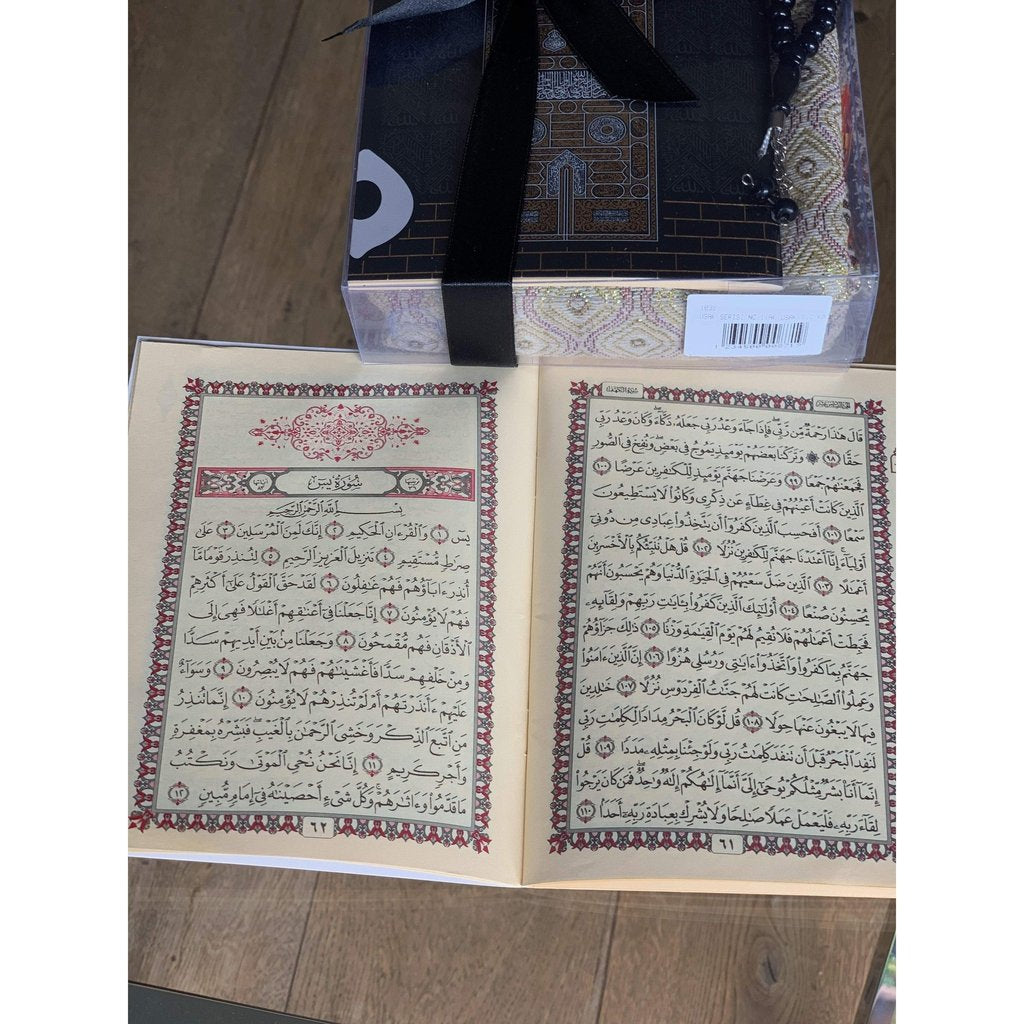 الجزء السادس عشر
سورة الكهف
قَالَ هَٰذَا رَحْمَةٌ مِّن رَّبِّي ۖ فَإِذَا جَآءَ وَعْدُ رَبِّي جَعَلَهُۥ دَكَّآءَ ۖ وَكَانَ وَعْدُ رَبِّي
حَقًّا ٩٨ وَتَرَكْنَا بَعْضَهُمْ يَوْمَئِذٍ يَمُوجُ فِي بَعْضٍ ۖ وَنُفِخَ فِي الصُّورِ
فَجَمَعْنَٰهُمْ جَمْعًا ٩٩ وَعَرَضْنَا جَهَنَّمَ يَوْمَئِذٍ لِّلْكَٰفِرِينَ عَرْضًا ١٠٠
الَّذِينَ كَانَتْ أَعْيُنُهُمْ فِي غِطَآءٍ عَن ذِكْرِي وَكَانُوا۟ لَا يَسْتَطِيعُونَ
سَمْعًا ١٠١ أَفَحَسِبَ الَّذِينَ كَفَرُوٓا۟ أَن يَتَّخِذُوا۟ عِبَادِي مِن دُونِيٓ
أَوْلِيَآءَ ۚ إِنَّآ أَعْتَدْنَا جَهَنَّمَ لِلْكَٰفِرِينَ نُزُلًا ١٠٢ قُلْ هَلْ نُنَبِّئُكُم بِالْأَخْسَرِينَ
أَعْمَٰلًا ١٠٣ الَّذِينَ ضَلَّ سَعْيُهُمْ فِي الْحَيَوٰةِ الدُّنْيَا وَهُمْ يَحْسَبُونَ أَنَّهُمْ
يُحْسِنُونَ صُنْعًا ١٠٤ أُو۟لَٰٓئِكَ الَّذِينَ كَفَرُوا۟ بِـَٔايَٰتِ رَبِّهِمْ وَلِقَآئِهِۦ
فَحَبِطَتْ أَعْمَٰلُهُمْ فَلَا نُقِيمُ لَهُمْ يَوْمَ الْقِيَٰمَةِ وَزْنًا ١٠٥ ذَٰلِكَ جَزَآؤُهُمْ
جَهَنَّمُ بِمَا كَفَرُوا۟ وَاتَّخَذُوٓا۟ ءَايَٰتِي وَرُسُلِي هُزُوًا ١٠٦ إِنَّ الَّذِينَ ءَامَنُوا۟
وَعَمِلُوا۟ الصَّٰلِحَٰتِ كَانَتْ لَهُمْ جَنَّٰتُ الْفِرْدَوْسِ نُزُلًا ١٠٧ خَٰلِدِينَ
فِيهَا لَا يَبْغُونَ عَنْهَا حِوَلًا ١٠٨ قُل لَّوْ كَانَ الْبَحْرُ مِدَادًا لِّكَلِمَٰتِ رَبِّي
لَنَفِدَ الْبَحْرُ قَبْلَ أَن تَنفَدَ كَلِمَٰتُ رَبِّي وَلَوْ جِئْنَا بِمِثْلِهِۦ مَدَدًا ١٠٩ قُلْ
إِنَّمَآ أَنَا۠ بَشَرٌ مِّثْلُكُمْ يُوحَىٰٓ إِلَيَّ أَنَّمَآ إِلَٰهُكُمْ إِلَٰهٌ وَٰحِدٌ ۖ فَمَن كَانَ يَرْجُوا۟
لِقَآءَ رَبِّهِۦ فَلْيَعْمَلْ عَمَلًا صَٰلِحًا وَلَا يُشْرِكْ بِعِبَادَةِ رَبِّهِۦٓ أَحَدًۢا ١١٠
٦١
سُورَةُ يسٓ
بِسْمِ اللَّهِ الرَّحْمَٰنِ الرَّحِيمِ
يسٓ ١ وَالْقُرْءَانِ الْحَكِيمِ ٢ إِنَّكَ لَمِنَ الْمُرْسَلِينَ ٣ عَلَىٰ
صِرَٰطٍ مُّسْتَقِيمٍ ٤ تَنزِيلَ الْعَزِيزِ الرَّحِيمِ ٥ لِتُنذِرَ قَوْمًا مَّآ
أُنذِرَ ءَابَآؤُهُمْ فَهُمْ غَٰفِلُونَ ٦ لَقَدْ حَقَّ الْقَوْلُ عَلَىٰٓ أَكْثَرِهِمْ
فَهُمْ لَا يُؤْمِنُونَ ٧ إِنَّا جَعَلْنَا فِيٓ أَعْنَٰقِهِمْ أَغْلَٰلًا فَهِيَ إِلَى
الْأَذْقَانِ فَهُم مُّقْمَحُونَ ٨ وَجَعَلْنَا مِنۢ بَيْنِ أَيْدِيهِمْ سَدًّا
وَمِنْ خَلْفِهِمْ سَدًّا فَأَغْشَيْنَٰهُمْ فَهُمْ لَا يُبْصِرُونَ ٩ وَسَوَآءٌ
عَلَيْهِمْ ءَأَنذَرْتَهُمْ أَمْ لَمْ تُنذِرْهُمْ لَا يُؤْمِنُونَ ١٠ إِنَّمَا تُنذِرُ
مَنِ اتَّبَعَ الذِّكْرَ وَخَشِيَ الرَّحْمَٰنَ بِالْغَيْبِ ۖ فَبَشِّرْهُ بِمَغْفِرَةٍ
وَأَجْرٍ كَرِيمٍ ١١ إِنَّا نَحْنُ نُحْيِ الْمَوْتَىٰ وَنَكْتُبُ
مَا قَدَّمُوا۟ وَءَاثَٰرَهُمْ ۚ وَكُلَّ شَيْءٍ أَحْصَيْنَٰهُ فِيٓ إِمَامٍ مُّبِينٍ ١٢
٦٢